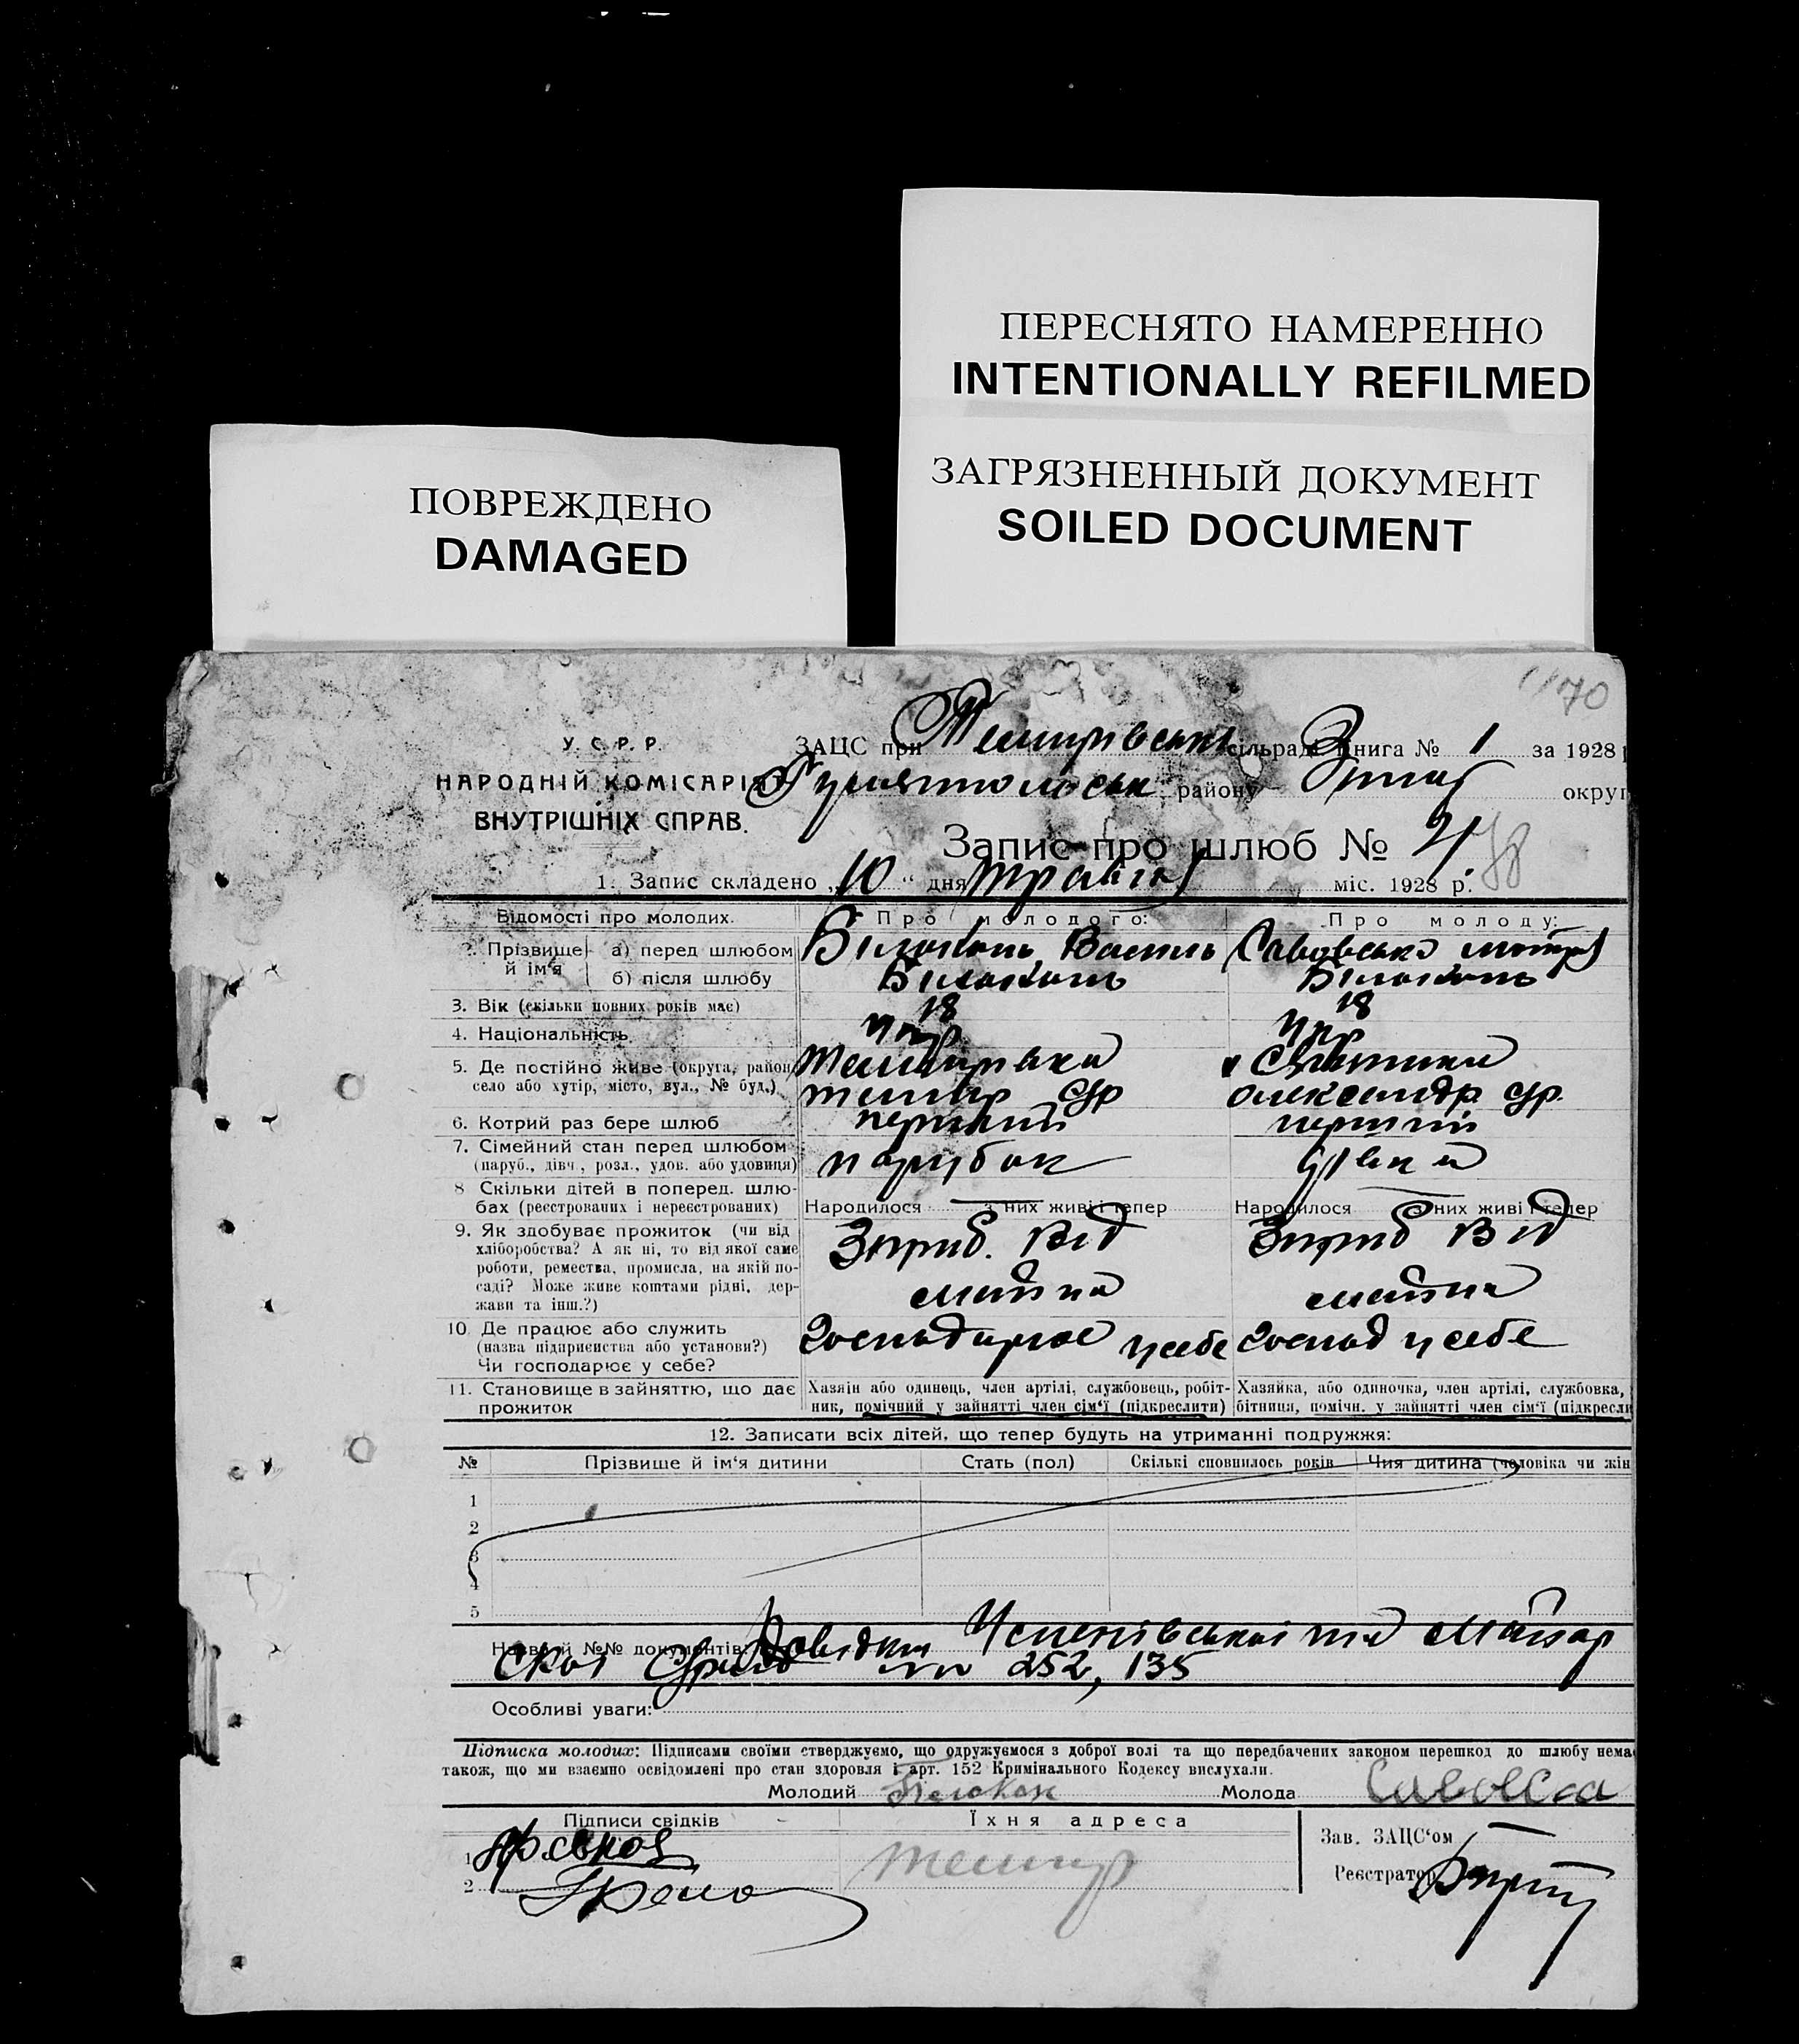 ПЕРЕСНЯТО НАМЕРЕННО
INTENTIONALLY REFILMED
ЗАГРЯЗНЕННЫЙ ДОКУМЕНТ
SOILED DOCUMENT
ПОВРЕЖДЕНО
DAMAGED
70
У. С. Р. Р.
НАРОДНІЙ КОМІСАРІЯТ
ВНУТРІШНІХ СПРАВ.
ЗАЦС при Темирівськ сільраді Книга № 1 за 1928 р
району округ
Запис про шлюб № 4
1. Запис складено „10“ дня травня міс. 1928 р.
Відомості про молодих. Про молодого: Про молоду:
2. Прізвище й ім'я а) перед шлюбом Білоконь Василь
б) після шлюбу Білоконь Білоконь
3. Вік (скільки повних років має) 18 18
4. Національність укр укр
5. Де постійно живе (округа, район, село або хутір, місто, вул., № буд.) Темирівка Темир с/р Олександр. с/р.
6. Котрий раз бере шлюб перший перший
7. Сімейний стан перед шлюбом (паруб., дівч., розл., удов. або удовиця) парубок дівка
8 Скільки дітей в поперед. шлюбах (реєстрованих і нереєстрованих) Народилося — з них живі і тепер Народилося — з них живі і тепер
9. Як здобуває прожиток (чи від хліборобства? А як ні, то від якої саме роботи, ремества, промисла, на якій посаді? Може живе коштами рідні, держави та інш.?) від від
10. Де працює або служить (назва підприємства або установи?) Чи господарює у себе? господарює у себе господ у себе
11. Становище в зайняттю, що дає прожиток Хазяїн або одинець, член артілі, службовець, робітник, помічний у зайнятті член сім'ї (підкреслити) Хазяйка, або одиночка, член артілі, службовка, бітниця, помічн. у зайнятті член сім'ї (підкресли
12. Записати всіх дітей, що тепер будуть на утриманні подружжя:
№ Прізвище й ім'я дитини Стать (пол) Скількі сповнилось років Чия дитина (чоловіка чи жін
1
2
3
4
5
Назви й №№ документів: Довідки Успенівської та
ської 252, 135
Особливі уваги:
Підписка молодих: Підписами своїми стверджуємо, що одружуємося з доброї волі та що передбачених законом перешкод до шлюбу нема
також, що ми взаємно освідомлені про стан здоровля і арт. 152 Кримінального Кодексу вислухали.
Молодий Білокон Молода
Підписи свідків Їхня адреса
Зав. ЗАЦС'ом
1
Реєстратор
2
Темир